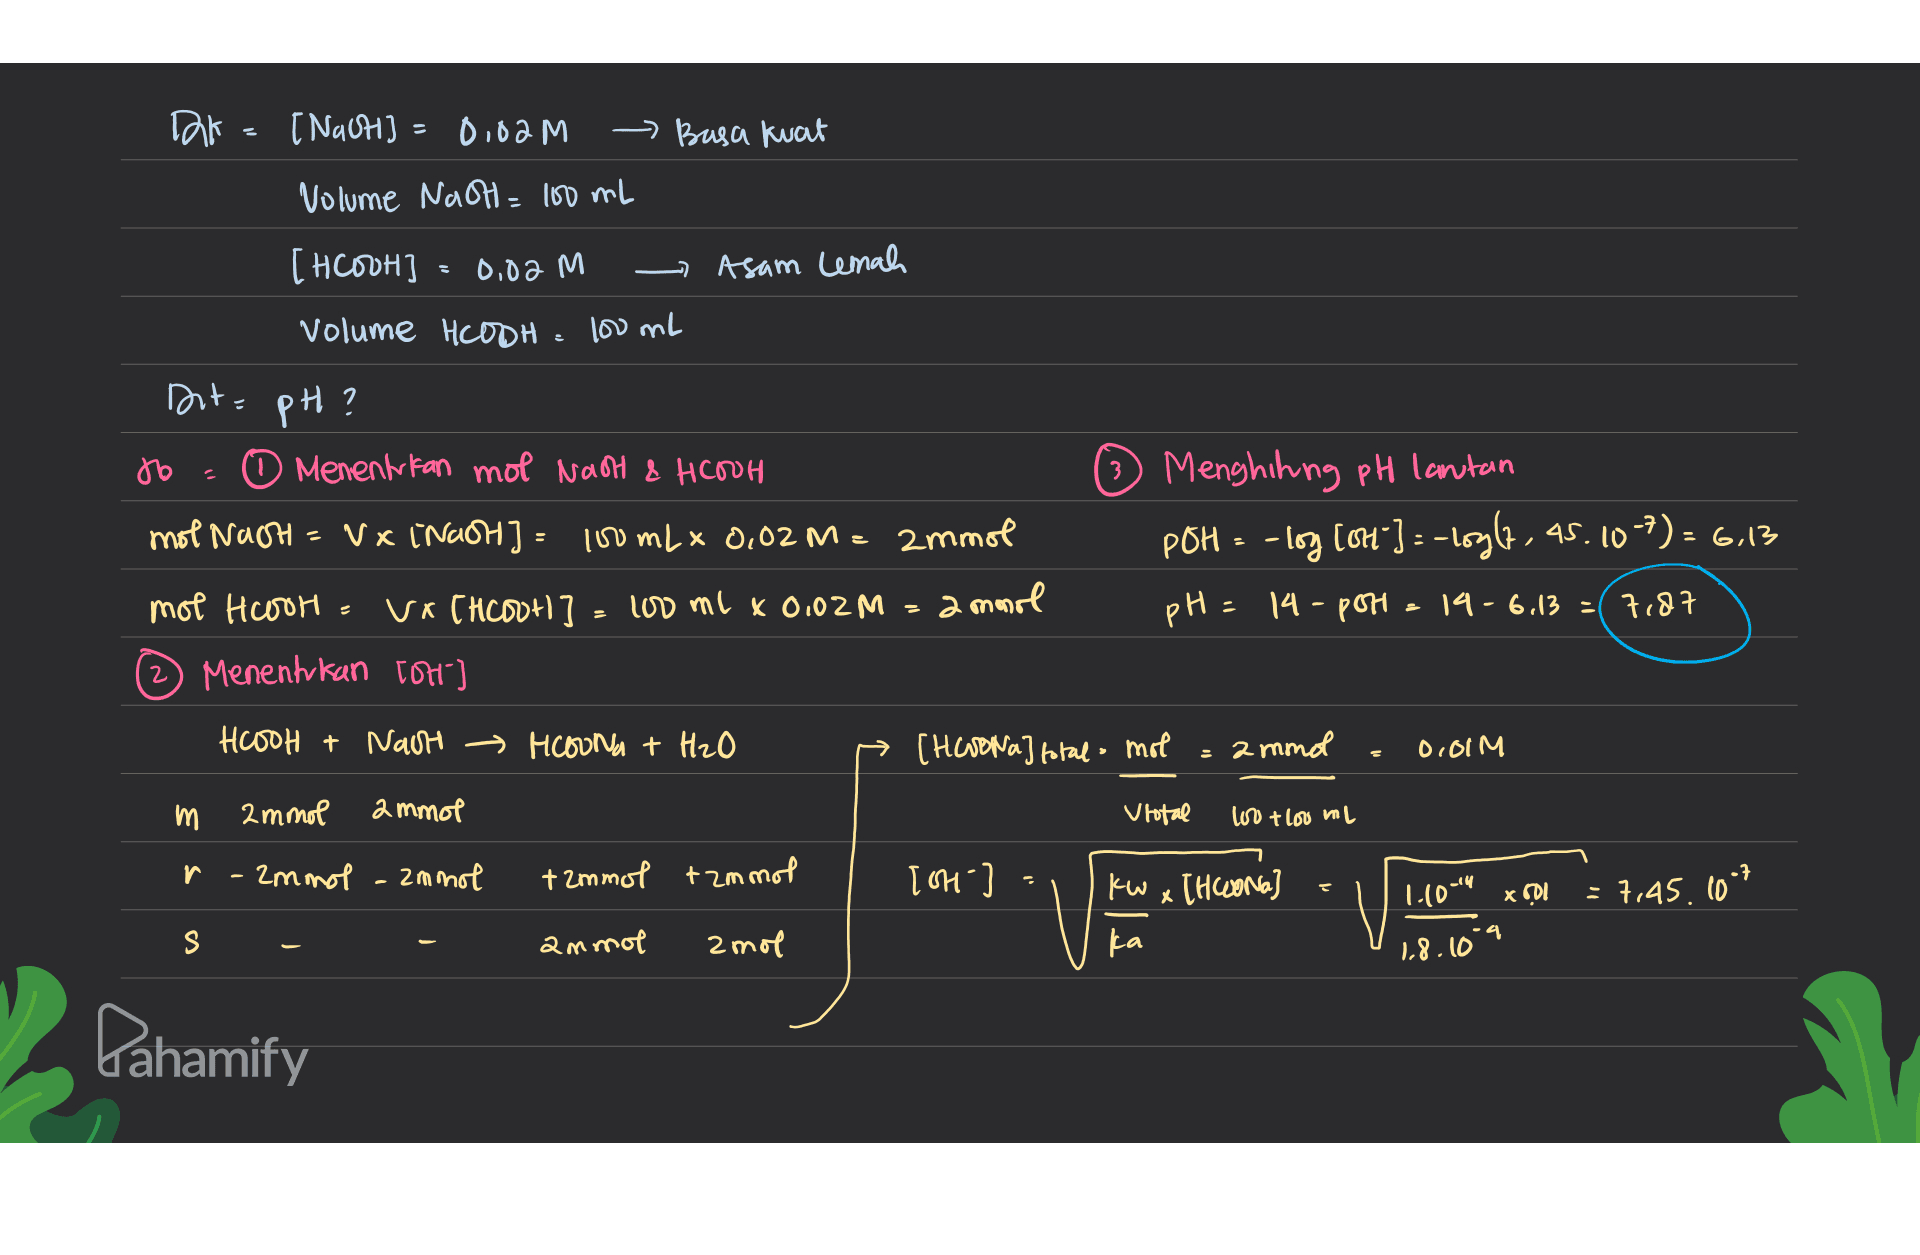 Dik = [NaOH] = 0,02 M → Basa kuat
Volume NaOH = 100 mL
[HCOOH] = 0,02 M → Asam Lemah
Volume HCOOH = 100 mL
Dit = pH ?
Jb = ① Menentukan mol NaOH & HCOOH
mol NaOH = V x [NaOH] = 100 mL x 0,02 M = 2 mmol
mol HCOOH = V x [HCOOH] = 100 mL x 0,02 M = 2 mmol
② Menentukan [OH⁻]
HCOOH + NaOH → HCOONa + H₂O
m 2 mmol 2 mmol
r - 2 mmol - 2 mmol + 2 mmol + 2 mmol
s - - 2 mmol 2 mol
→ [HCOONa] total = mol = 2 mmol = 0,01 M
V total 100 + 100 mL
[OH⁻] = √ Kw x [HCOONa] = √ 1.10⁻¹⁴ x 0,01 = 7,45. 10⁻⁷
Ka 1,8.10⁻⁴
③ Menghitung pH larutan
pOH = - log [OH⁻] = - log (7,45. 10⁻⁷) = 6,13
pH = 14 - pOH = 14 - 6,13 = 7,87
Pahamify